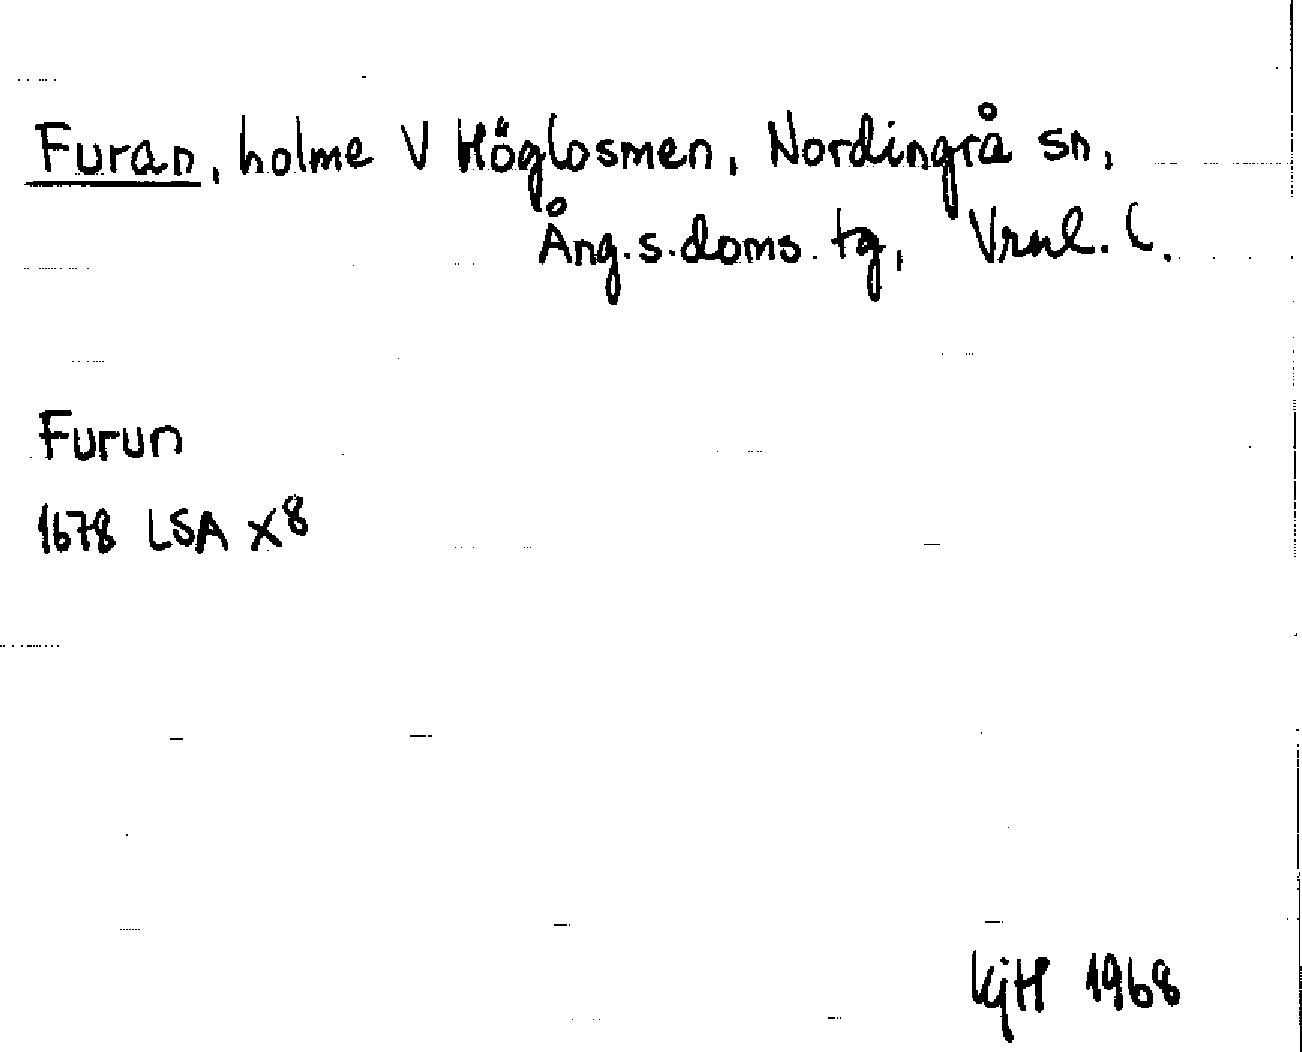 Furan, holme V Höglosmen, Nordingrå sn,
Ång.s.doms.tg, Vrnl. L.
Furun
1678 LSA X8
KjH 1968